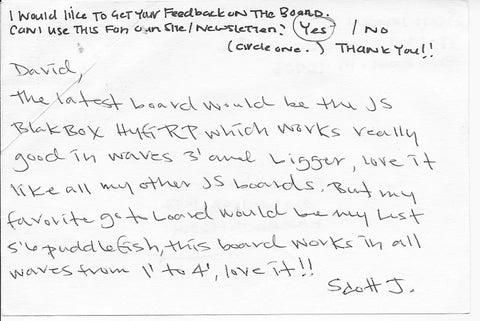 I would like to Get Your Feedback on The Board.
Can I use This For our Site/Newsletter? Yes / No
(circle one.) Thank You!!
David,
The latest board would be the JS
BlakBox HyGRP which works really
good in waves 3' and bigger, love it
like all my other JS boards. But my
favorite go to board would be my Lost
5'6 puddlefish, this board works in all
waves from 1' to 4', love it!!
Scott J.